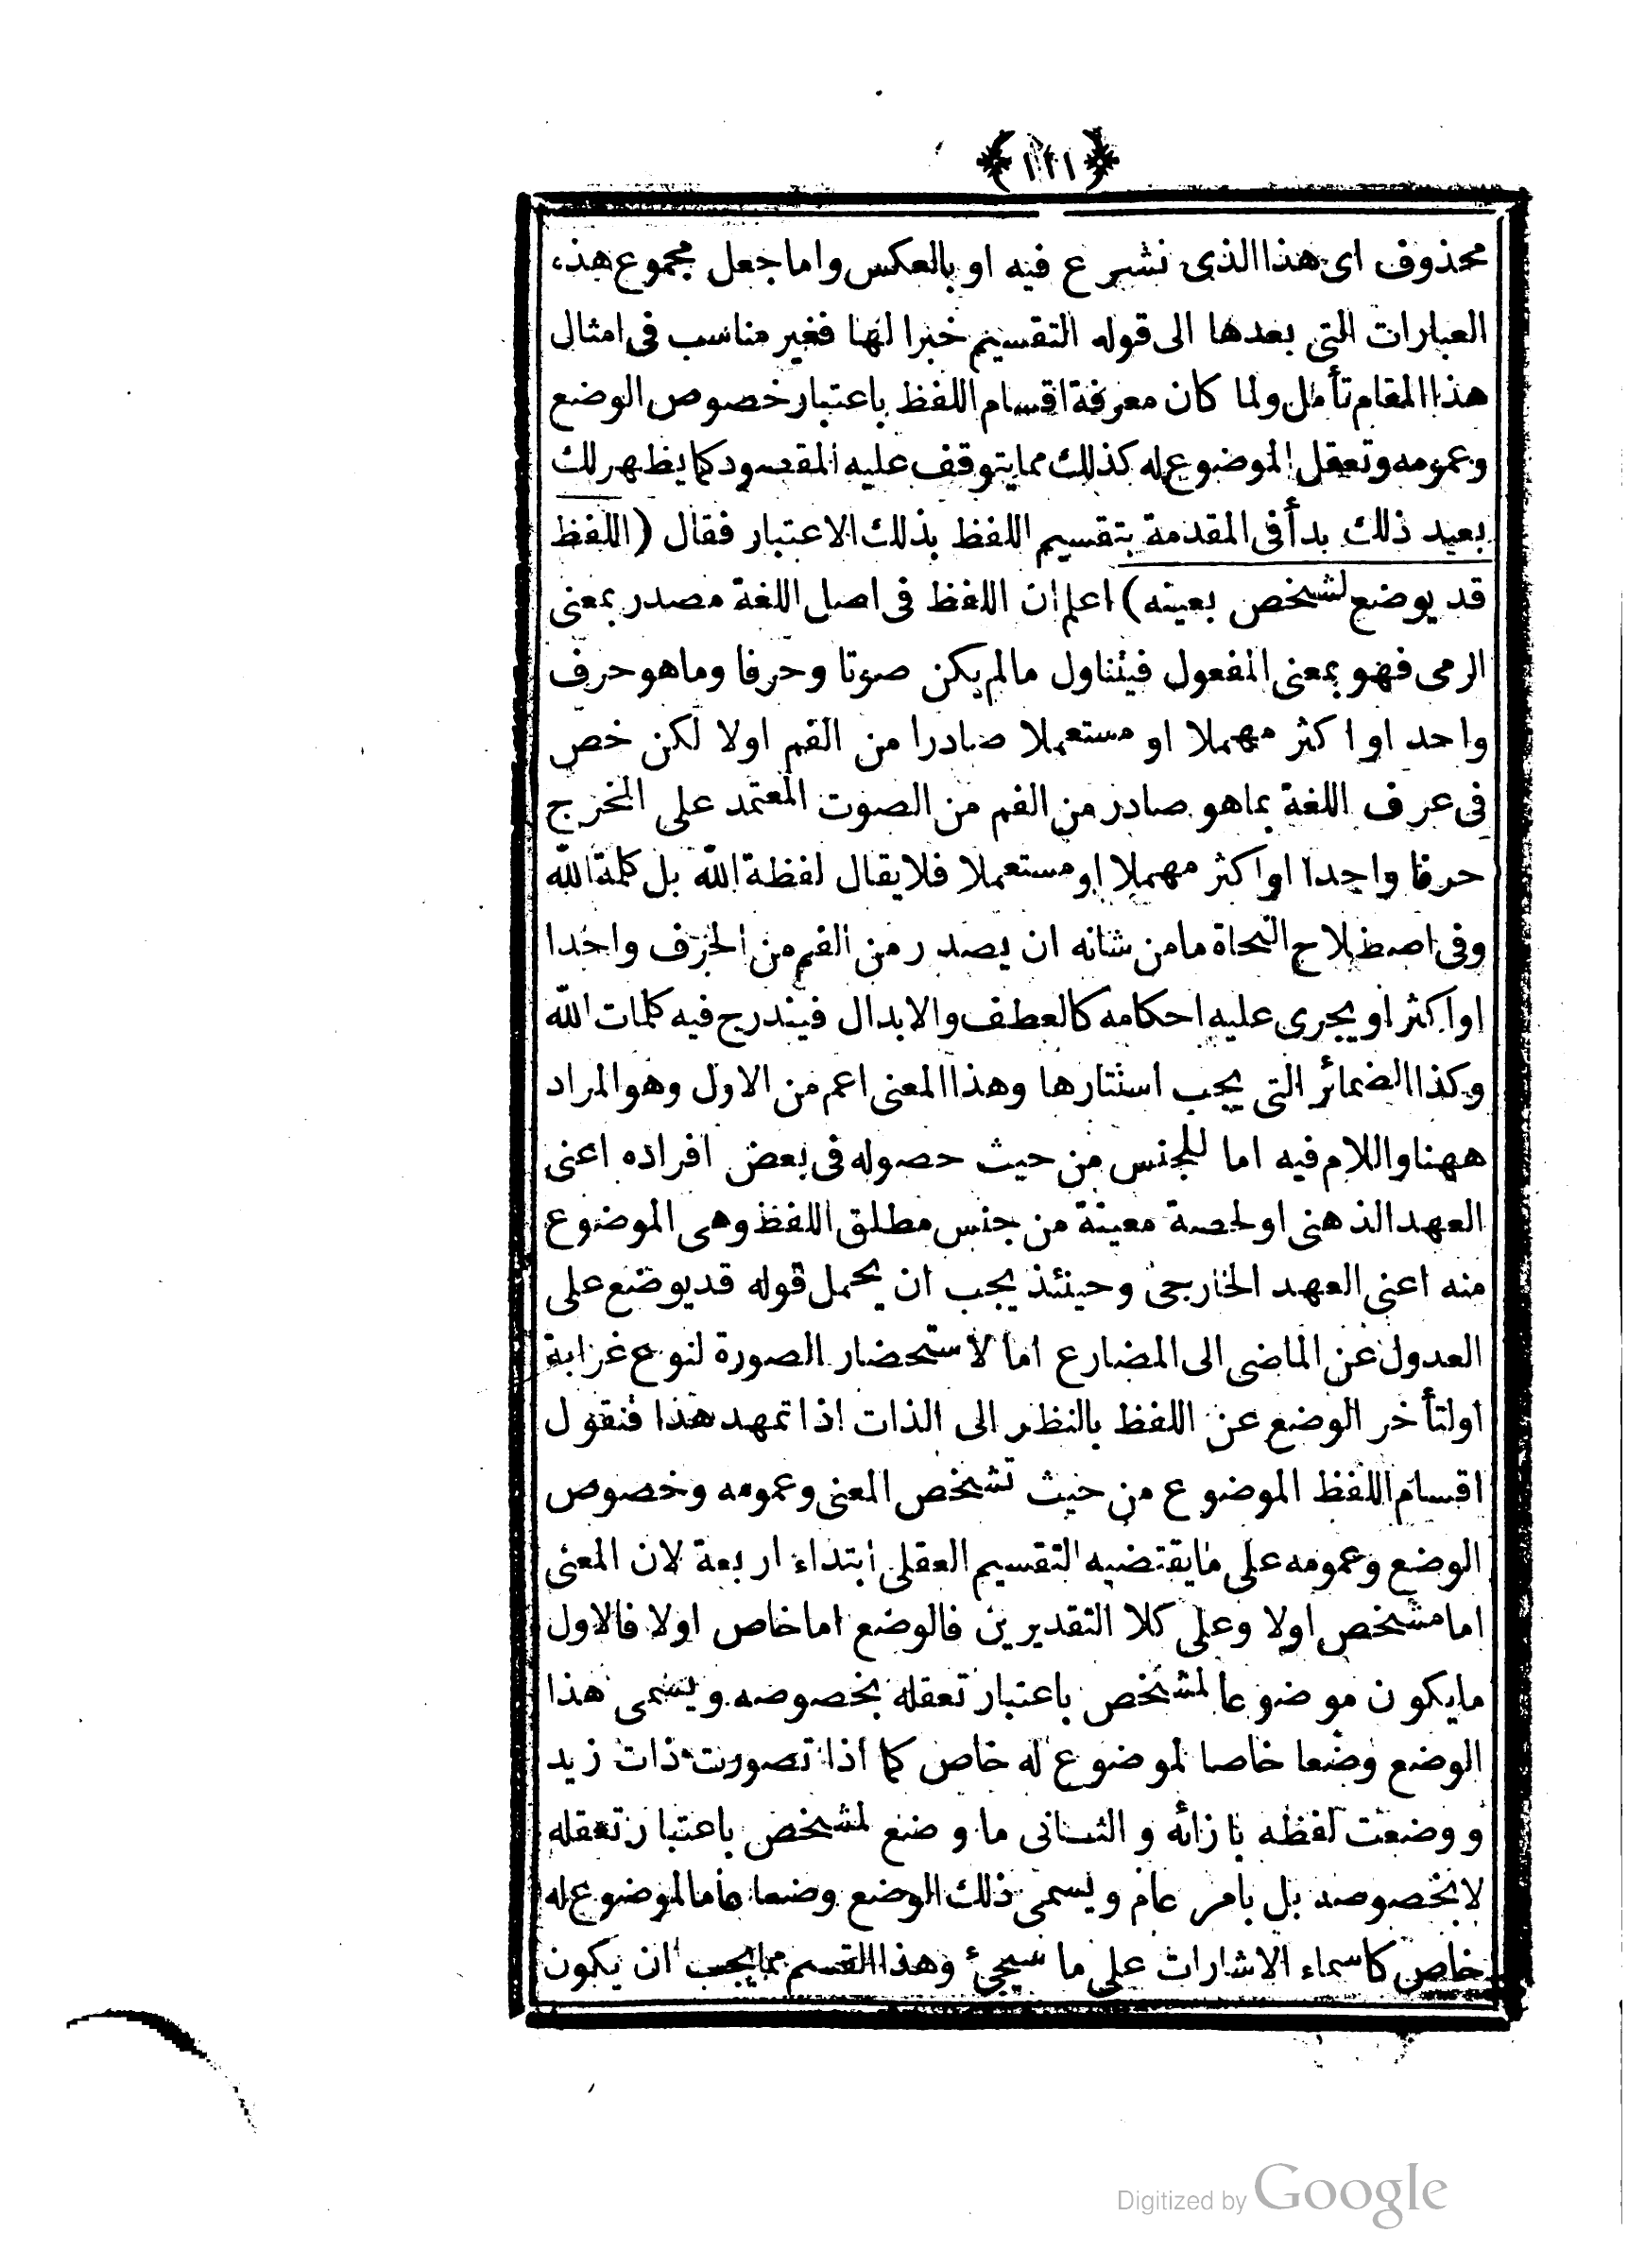 ﴿١٢١﴾
محذوف اى هذا الذى نشرع فيه او بالعكس واما جعل مجموع هذه
العبارات التى بعدها الى قوله التقسيم خبرا لها فغير مناسب فى امثال
هذا المقام تأمل ولما كان معرفة اقسام اللفظ باعتبار خصوص الوضع
وعمومه وتعقل الموضوع له كذلك مما يتوقف عليه المقصود كما يظهر لك
بعيد ذلك بدأ فى المقدمة بتقسيم اللفظ بذلك الاعتبار فقال (اللفظ
قد يوضع لشخص بعينه) اعلم ان اللفظ فى اصل اللغة مصدر بمعنى
الرمى فهو بمعنى المفعول فيتناول مالم يكن صوتا وحرفا وماهو حرف
واحد او اكثر مهملا او مستعملا صادرا من الفم اولا لكن خص
فى عرف اللغة بماهو صادر من الفم من الصوت المعتمد على المخرج
حرفا واحدا او اكثر مهملا او مستعملا فلا يقال لفظة الله بل كلمة الله
وفى اصطلاح النحاة مامن شانه ان يصدر من الفم من الحرف واحدا
او اكثر او يجرى عليه احكامه كالعطف والابدال فيندرج فيه كلمات الله
وكذا الضمائر التى يجب استتارها وهذا المعنى اعم من الاول وهو المراد
ههنا واللام فيه اما للجنس من حيث حصوله فى بعض افراده اعنى
العهد الذهنى او لحصة معينة من جنس مطلق اللفظ وهى الموضوع
منه اعنى العهد الخارجى وحينئذ يجب ان يحمل قوله قد يوضع على
العدول عن الماضى الى المضارع اما لاستحضار الصورة لنوع غرابة
او لتأخر الوضع عن اللفظ بالنظر الى الذات اذا تمهد هذا فنقول
اقسام اللفظ الموضوع من حيث تشخص المعنى وعمومه وخصوص
الوضع وعمومه على مايقتضيه التقسيم العقلى ابتداء اربعة لان المعنى
اما مشخص اولا وعلى كلا التقديرين فالوضع اما خاص اولا فالاول
مايكون موضوعا لمشخص باعتبار تعقله بخصوصه ويسمى هذا
الوضع وضعا خاصا لموضوع له خاص كما اذا تصورت ذات زيد
ووضعت لفظه بازائه والثانى ما وضع لمشخص باعتبار تعقله
لا بخصوصه بل بامر عام ويسمى ذلك الوضع وضعا عاما لموضوع له
خاص كاسماء الاشارات على ما سيجئ وهذا القسم مما يجب ان يكون
Digitized by Google